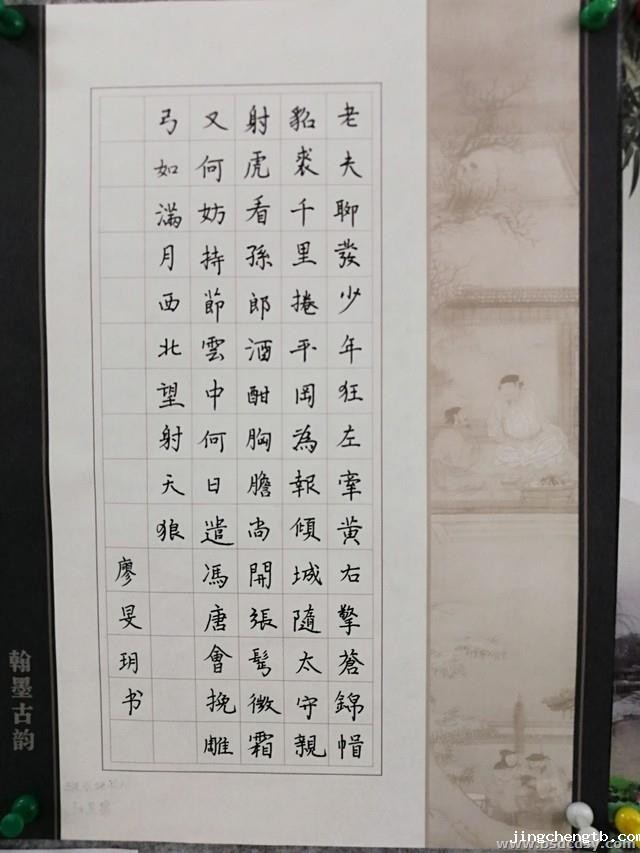 老夫聊發少年狂左牽黃右擎蒼錦帽
貂裘千里捲平岡為報傾城隨太守親
射虎看孫郎酒酣胸膽尚開張鬢微霜
又何妨持節雲中何日遣馮唐會挽雕
弓如滿月西北望射天狼
廖旻玥书
翰墨古韵
jingchengtb.com